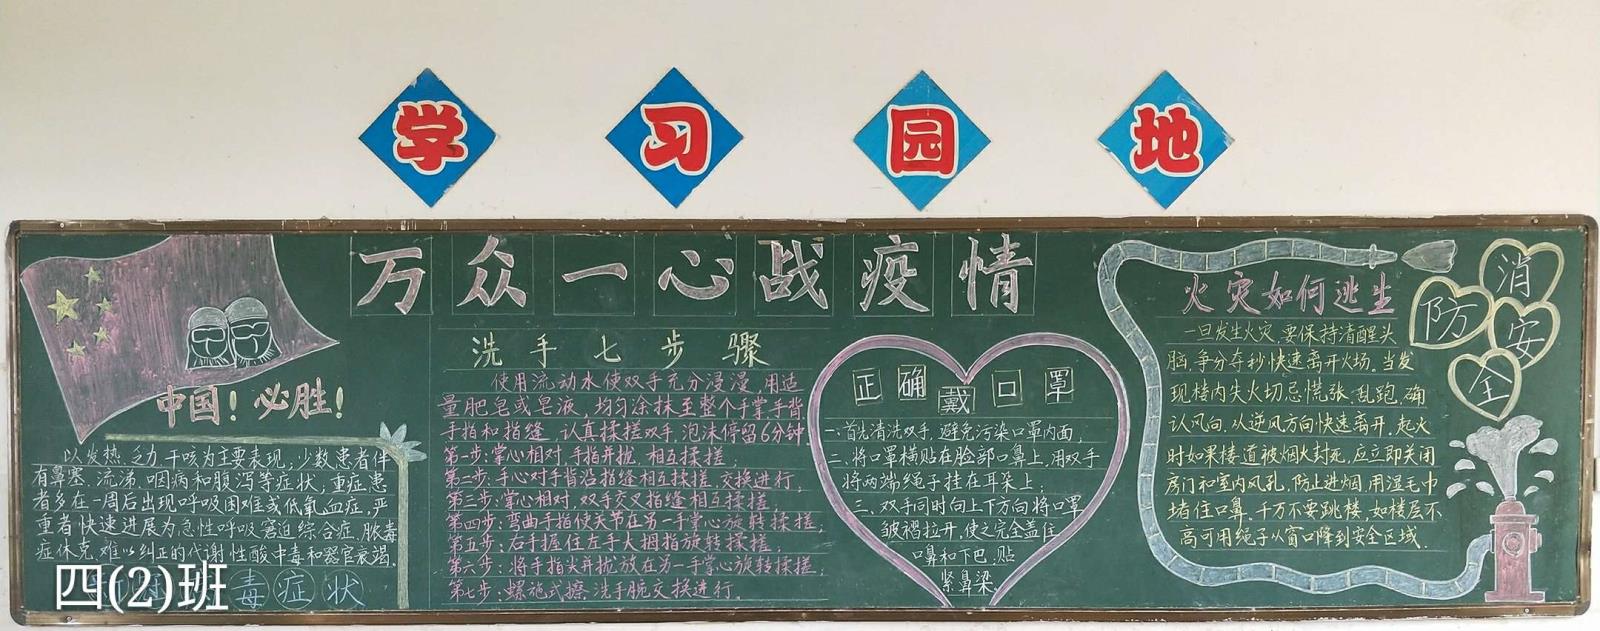 学习园地
万众一心战疫情
中国！必胜！
以发热、乏力、干咳为主要表现，少数患者伴
有鼻塞、流涕、咽病和腹泻等症状，重症患
者多在一周后出现呼吸困难或低氧血症，严
重者快速进展为急性呼吸窘迫综合症、脓毒
症休克、难以纠正的代谢性酸中毒和器官衰竭。
毒症状
四(2)班
洗手七步骤
使用流动水使双手充分浸漫，用适
量肥皂或皂液，均匀涂抹至整个手掌，手背
手指和指缝，认真揉搓双手，泡沫停留6分钟
第一步：掌心相对，手指并拢，相互揉搓；
第二步：手心对手背沿指缝相互揉搓，交换进行，
第三步：掌心相对，双手交叉指缝相互揉搓，
第四步：弯曲手指使关节在另一手掌心旋转揉搓，
第五步：右手握住左手大拇指旋转揉搓，
第六步：将手指尖并拢放在另一手掌心旋转揉搓，
第七步：螺旋式擦洗手腕交换进行。
正确戴口罩
一、首先清洗双手，避免污染口罩内面，
二、将口罩横贴在脸部口鼻上，用双手
将两端绳子挂在耳朵上；
三、双手同时向上下方向将口罩
皱褶拉开，使之完全盖住
口鼻和下巴，贴
紧鼻梁
火灾如何逃生
一旦发生火灾，要保持清醒头
脑，争分夺秒快速离开火场。当发
现楼内失火切忌慌张、乱跑，确
认风向，从逆风方向快速离开。起火
时如果楼道被烟火封死，应立即关闭
房门和室内风孔，防止进烟，用湿毛巾
堵住口鼻，千万不要跳楼，如楼层不
高可用绳子从窗口降到安全区域.
消
防
安
全